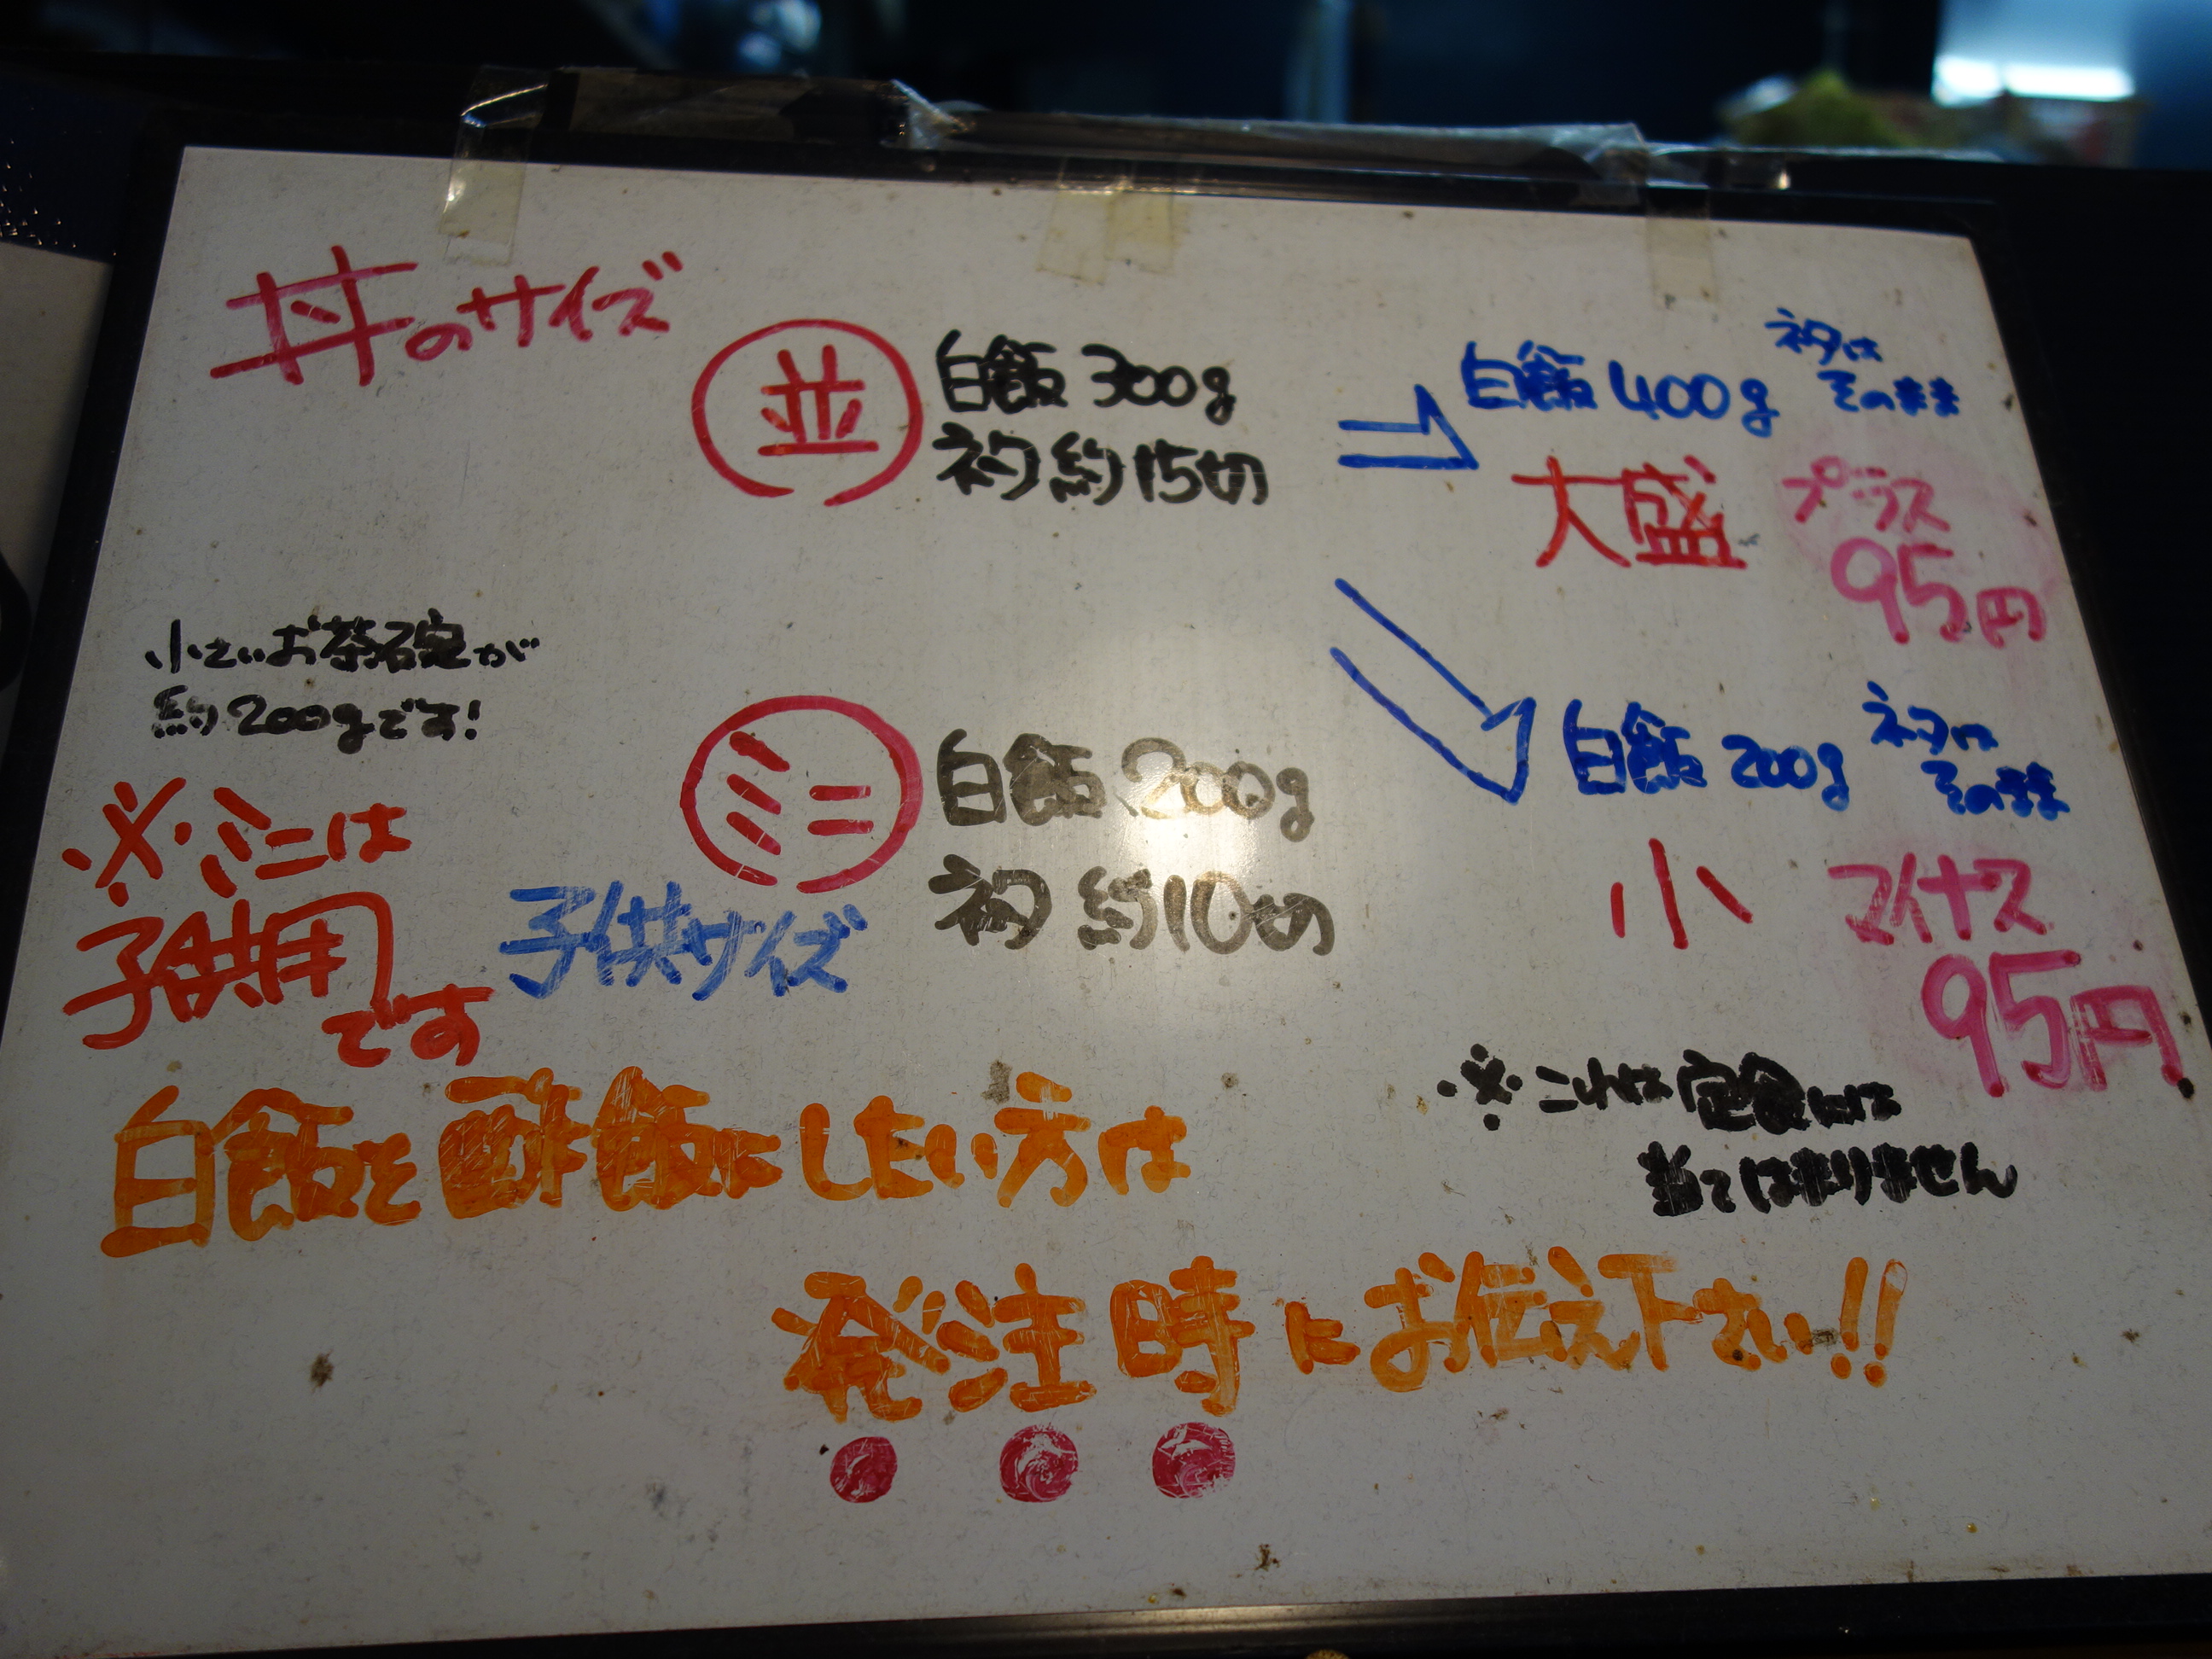 丼のサイズ
並
白飯 300g
ネタ 約15切
白飯 400g
ネタは
そのまま
大盛
プラス
95円
小さいお茶碗が
約200gです!
ミニ
白飯 200g
ネタ 約10切
子供サイズ
※ミニは
子供用
です
白飯 200g
ネタは
そのまま
小
マイナス
95円
※これは定食には
当てはまりません
白飯を酢飯にしたい方は
発注時にお伝え下さい!!